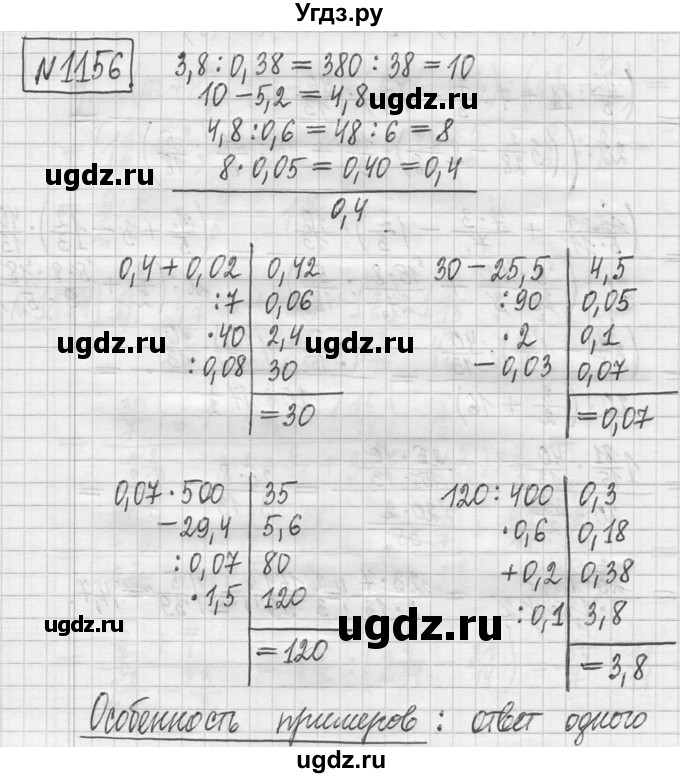 Угдз.ру
№1156
3,8 : 0,38 = 380 : 38 = 10
10 − 5,2 = 4,8
ugdz.ru
4,8 : 0,6 = 48 : 6 = 8
8 · 0,05 = 0,40 = 0,4
ugdz.ru
0,4
0,4 + 0,02 | 0,42
: 7 | 0,06
· 40 | 2,4
ugdz.ru
: 0,08 | 30
= 30
30 − 25,5 | 4,5
: 90 | 0,05
· 2 | 0,1
ugdz.ru
− 0,03 | 0,07
= 0,07
ugdz.ru
0,07 · 500 | 35
− 29,4 | 5,6
: 0,07 | 80
· 1,5 | 120
ugdz.ru
= 120
120 : 400 | 0,3
· 0,6 | 0,18
+ 0,2 | 0,38
: 0,1 | 3,8
ugdz.ru
= 3,8
Особенность примеров : ответ одного
ugdz.ru